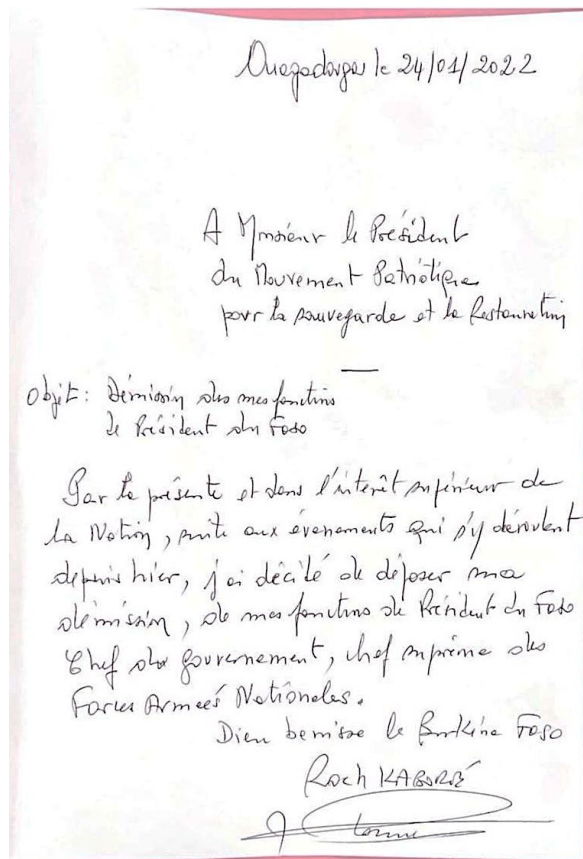 Ouagadougou le 24/01/2022
A Monsieur le Président
du Mouvement Patriotique
pour la sauvegarde et la Restauration
Objet: Démission des mes fonctions
de Président du Faso
Par la présente et dans l'interêt supérieur de
la Nation, suite aux évenements qui s'y déroulent
depuis hier, j'ai décidé de déposer ma
démission, de mes fonctions de Président du Faso
Chef du gouvernement, chef suprême des
Forces Armées Nationales.
Dieu benisse le Burkina Faso
Roch KABORÉ